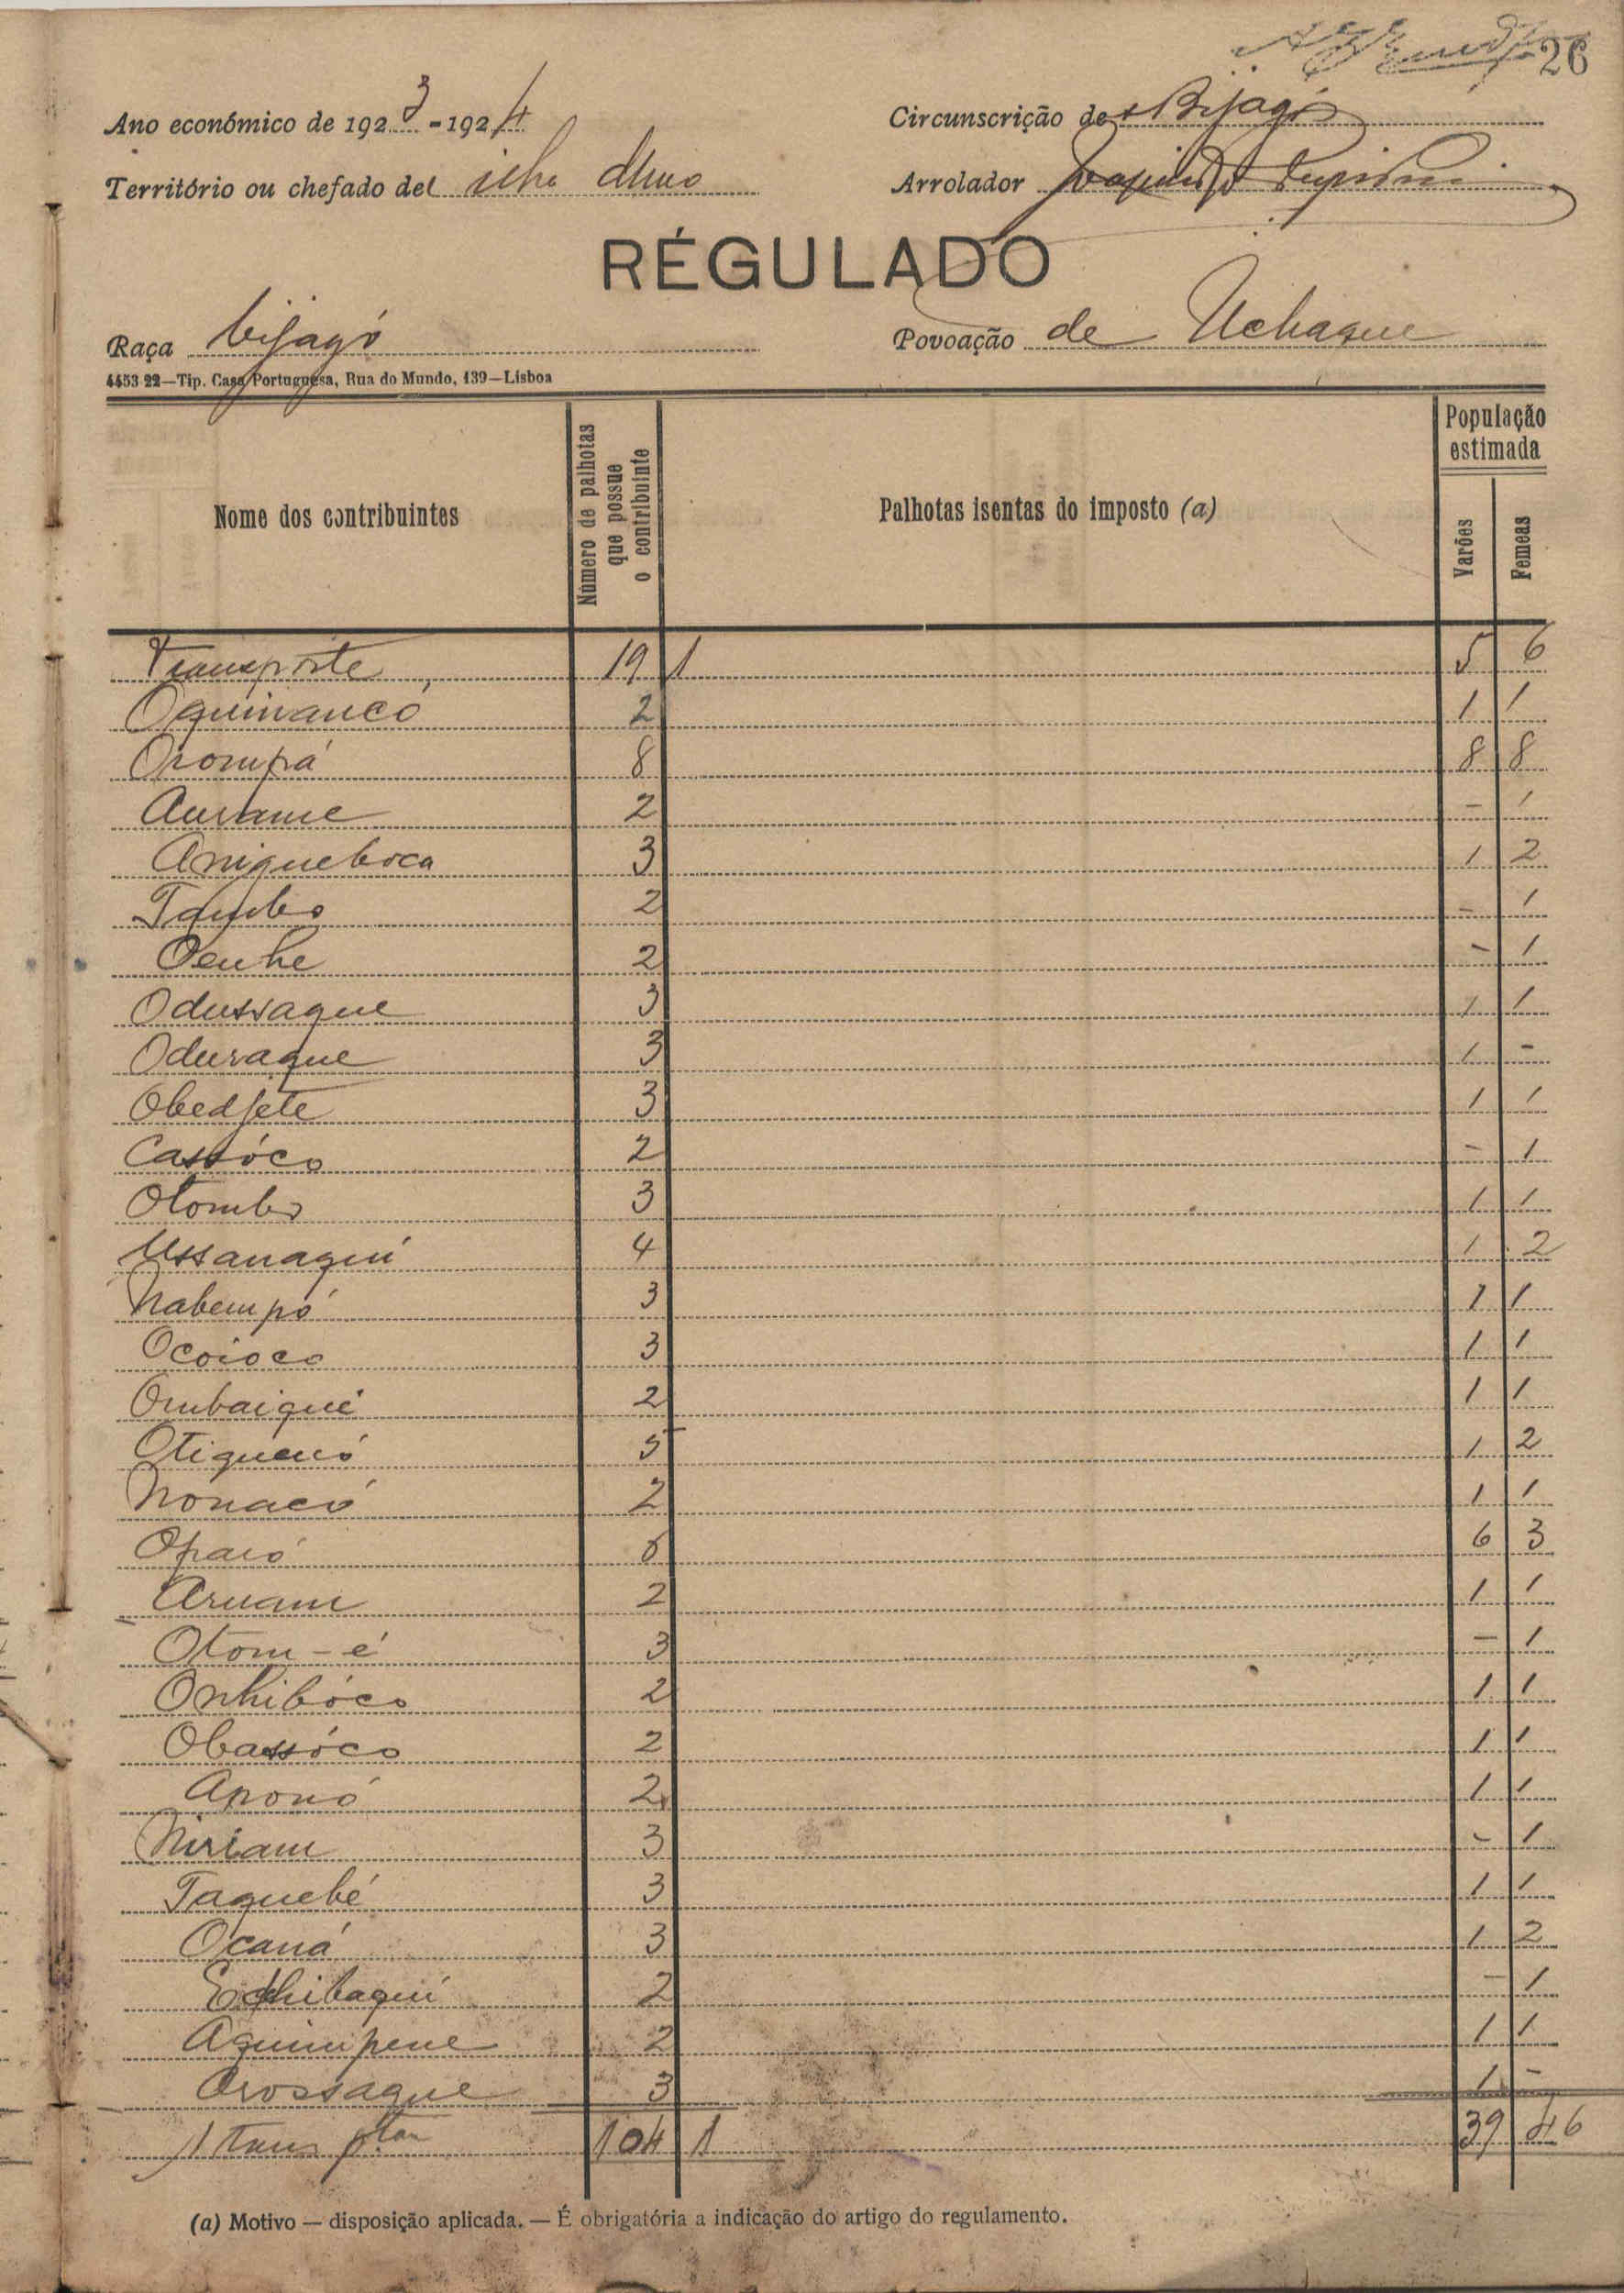 26
Ano económico de 1923-1924 Circunscrição de Bijagós
Território ou chefado de ilha Arrolador
RÉGULADO
Raça bijagó Povoação de Uchaque
4453 22—Tip. Casa Portuguesa, Rua do Mundo, 139—Lisboa
Nome dos contribuintes Número de palhotas que possue o contribuinte Palhotas isentas do imposto (a) População estimada Varões Femeas
Transporte 19 1 5 6
Oquinancó 2 1 1
Orompá 8 8 8
Aurame 2 - 1
Aniqueboca 3 1 2
Tambo 2 - 1
Oenhe 2 - 1
Odussaque 3 1 1
Oduraque 3 1 -
Obedjete 3 1 1
Cassóco 2 - 1
Otombo 3 1 1
Ussanaqui 4 1 2
Nabempó 3 1 1
Ocoioco 3 1 1
Ombaiqué 2 1 1
Otiquenó 5 1 2
Nonacó 2 1 1
Opaió 6 3
Aruam 2 1 1
Otom-é 3 - 1
Onhibóco 2 1 1
Obassóco 2 1 1
Aponó 2 1 1
Niriam 3 - 1
Taquebé 3 1 1
Ocaná 3 1 2
2 - 1
Aquimpene 2 1 1
Orossaque 3 1 -
104 1 39 46
(a) Motivo — disposição aplicada. — É obrigatória a indicação do artigo do regulamento.